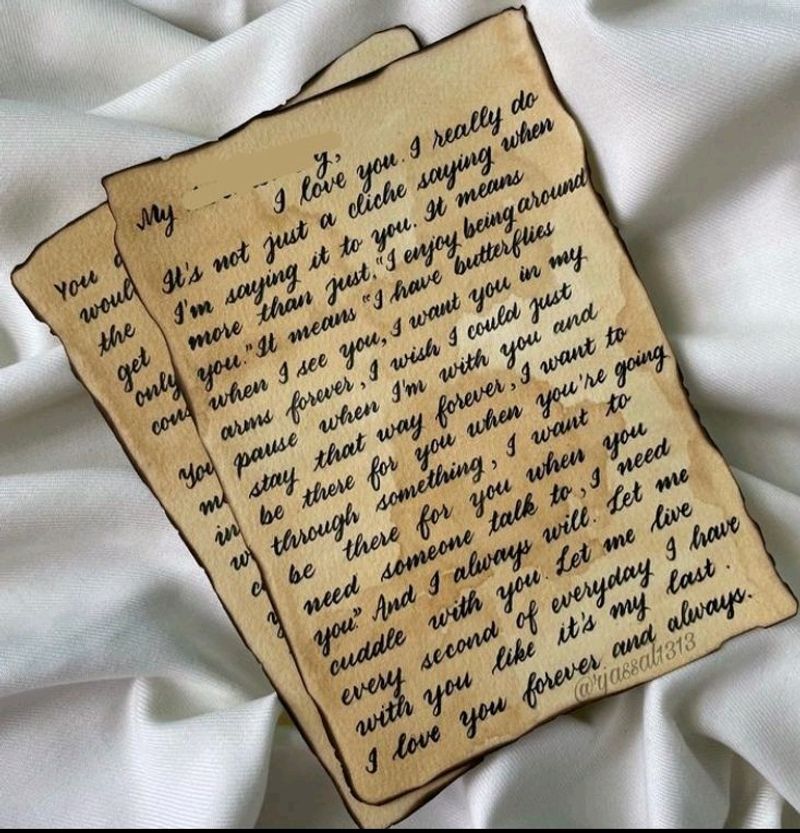 My y,
I love you. I really do
It's not just a cliche saying when
I'm saying it to you. It means
more than just, "I enjoy being around
you." It means "I have butterflies
when I see you, I want you in my
arms forever, I wish I could just
pause when I'm with you and
stay that way forever, I want to
be there for you when you're going
through something, I want to
be there for you when you
need someone talk to, I need
you." And I always will. Let me
cuddle with you. Let me live
every second of everyday I have
with you like it's my last.
I love you forever and always.
You
the
get
only